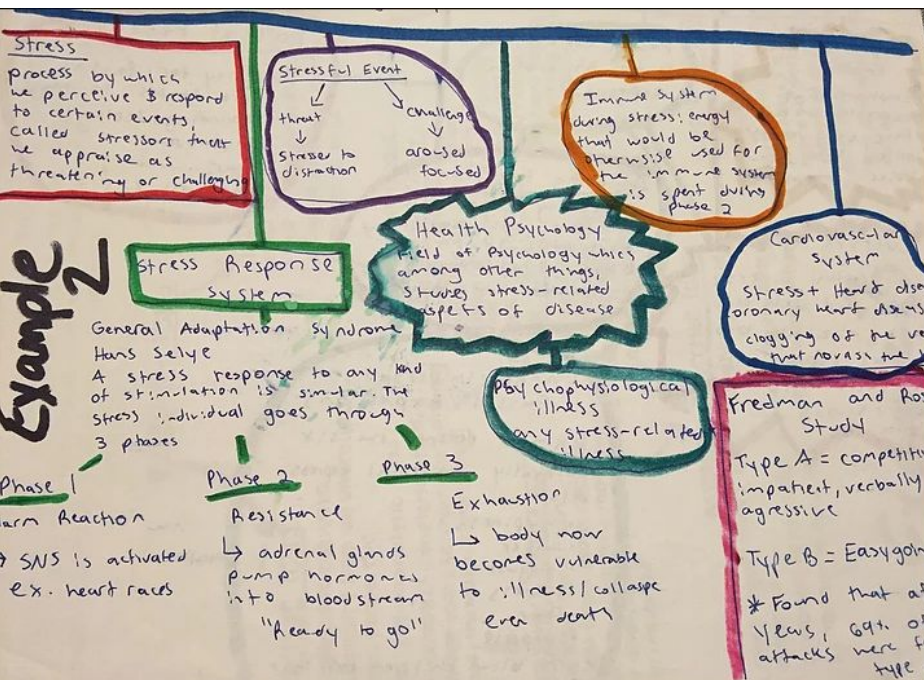 Stress
process by which
we perceive & respond
to certain events,
called stressors that
we appraise as
threatening or challenging
Stressful Event
threat
challenge
Stresser to
distraction
aroused
focused
Immune System
during stress: energy
that would be
otherwsise used for
the immune system
is spent during
phase 2
Cardiovascular
System
Stress + Heart dise
oronary heart diseas
clogging of the ve
that the
Example
2
Stress Response
System
Health Psychology
Field of Psychology which
among other things,
studies stress-related
aspets of disease
General Adaptation Syndrome
Hans Selye
A stress response to any kind
of stimulation is similar. The
stress individual goes through
3 phases
Psychophysiological
illness
any stress-related
illness
Fredman and Ros
Study
Type A = competiti
impatient, verbally
agressive
Type B = Easygoin
* Found that a
years, 69% o
attacks were f
type
Phase 1
arm Reaction
→ SNS is activated
ex. heart races
Phase 2
Resistance
↳ adrenal glands
pump hormones
into bloodstream
"Ready to go"
Phase 3
Exhaustion
↳ body now
becomes vulnerable
to illness/collaspe
even death